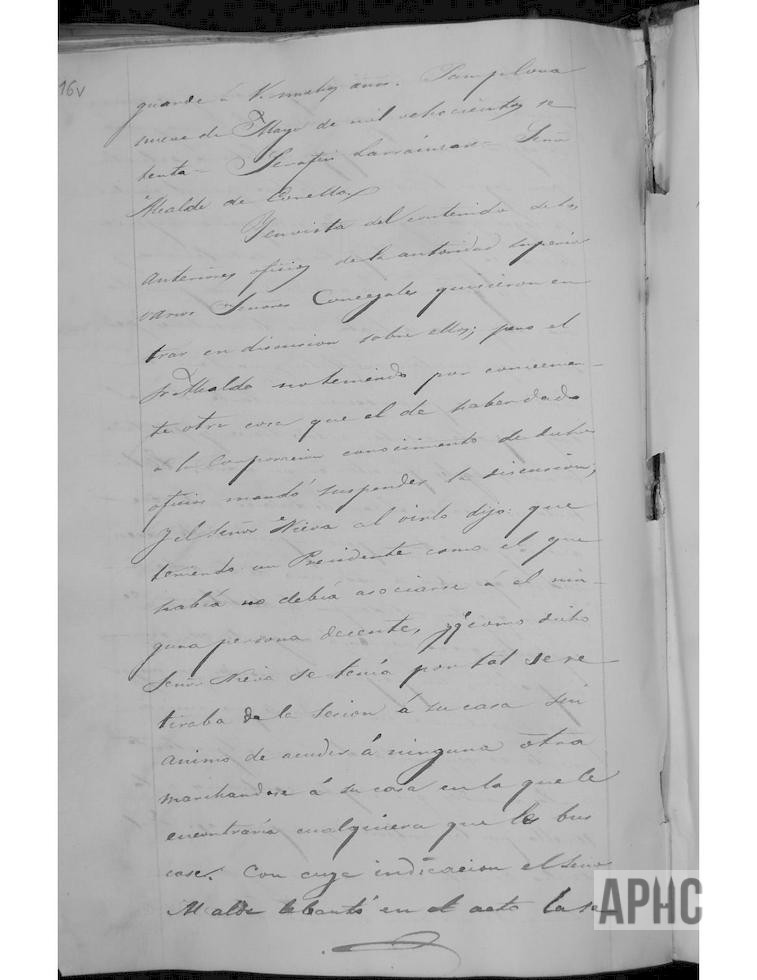 16v
guarde á V. muchos años. Pamplona
nueve de Mayo de mil ochocientos se
tenta = Serafin Larrainzar = Señor
Alcalde de Corella
Y en vista del contenido de los
anteriores oficios de la autoridad superior
varios Señores Concegales quisieron en
trar en discusion sobre ellos; pero el
Sr. Alcalde no teniendo por combenien-
te otra cosa que el de haber dado
á la Corporacion conocimiento de dichos
oficios mandó suspender la discusion,
y el Señor Nieva al oirlo dijo: que
teniendo un Presidente como el que
había no debía asociarse á él nin-
guna persona decente, y como dicho
Señor Nieva se tenía por tal se re
tiraba de la Sesion á su casa sin
animo de acudir á ninguna otra
marchandose á su casa en la que le
encontraría cualquiera que le bus
case. Con cuya indicacion el Señor
Alcalde lebantó en el acto la se
APHC